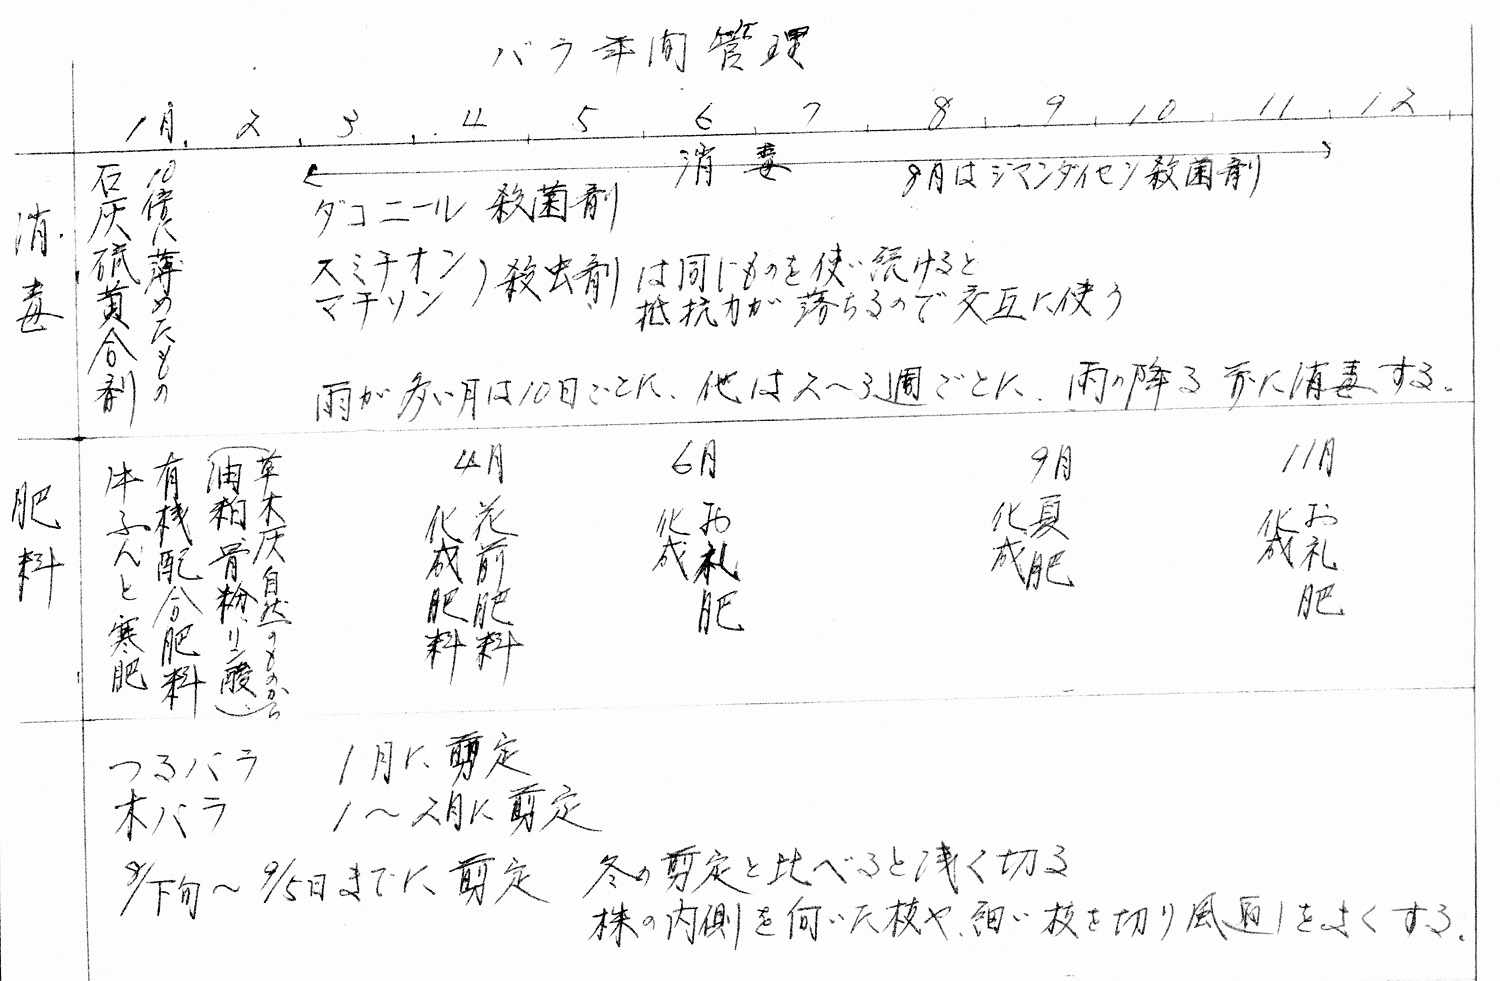 バラ年間管理
1月 2 3 4 5 6 7 8 9 10 11 12
消毒
石灰硫黄合剤
10倍に薄めたもの
消毒
8月はジマンダイセン殺菌剤
ダコニール 殺菌剤
スミチオン
マチソン
)殺虫剤
は同じものを使い続けると
抵抗力が落ちるので交互に使う
雨が多い月は10日ごとに、他は2〜3週ごとに、雨の降る前に消毒する。
肥料
草木灰自然のものから
(油粕、骨粉、リン酸)
有機配合肥料
牛ふんと寒肥
4月
花前肥料
化成肥料
6月
お礼肥
化成
9月
夏肥
化成
11月
お礼肥
化成
つるバラ 1月に剪定
木バラ 1〜2月に剪定
8/下旬〜9/5日までに剪定 冬の剪定と比べると浅く切る
株の内側を向いた枝や、細い枝を切り風通しをよくする。